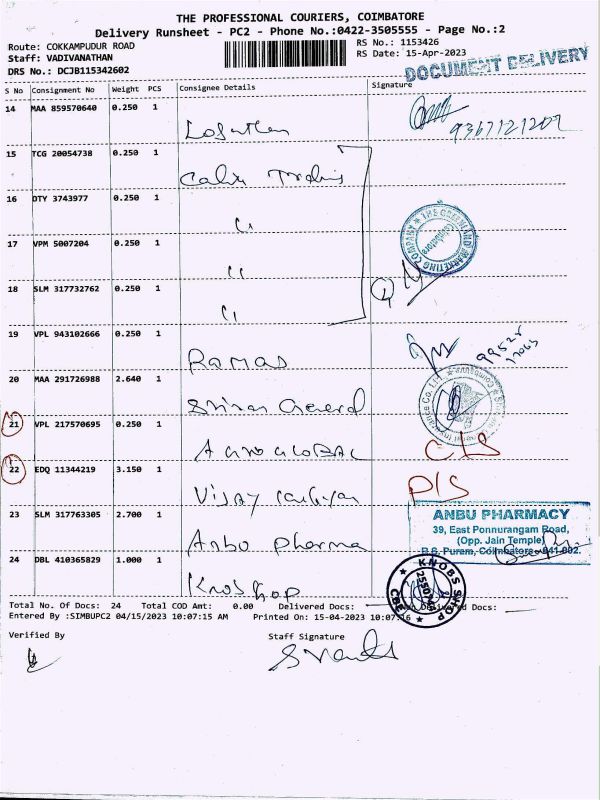 THE PROFESSIONAL COURIERS, COIMBATORE
Delivery Runsheet - PC2 - Phone No.:0422-3505555 - Page No.:2
Route: COKKAMPUDUR ROAD
Staff: VADIVANATHAN
DRS No.: DCJB115342602
RS No.: 1153426
RS Date: 15-Apr-2023
DOCUMENT DELIVERY
S No Consignment No Weight PCS Consignee Details Signature
14 MAA 859570640 0.250 1
9367121207
15 TCG 20054738 0.250 1
16 DTY 3743977 0.250 1
THE GREENLAND MARKETING COMPANY
Coimbatore
17 VPM 5007204 0.250 1
18 SLM 317732762 0.250 1
4
19 VPL 943102666 0.250 1 Ramas
20 MAA 291726988 2.640 1
21 VPL 217570695 0.250 1
C/S
22 EDQ 11344219 3.150 1 Vijay
D/S
23 SLM 317763305 2.700 1 Anbu Pharma
ANBU PHARMACY
39, East Ponnurangam Road,
(Opp. Jain Temple)
R.S. Puram, Coimbatore - 641 002.
24 DBL 410365829 1.000 1 Knoshop
KNOBS SHOP
CBE
Total No. Of Docs: 24 Total COD Amt: 0.00 Delivered Docs: Non Delivered Docs:
Entered By :SIMBUPC2 04/15/2023 10:07:15 AM Printed On: 15-04-2023 10:07:16
Verified By Staff Signature